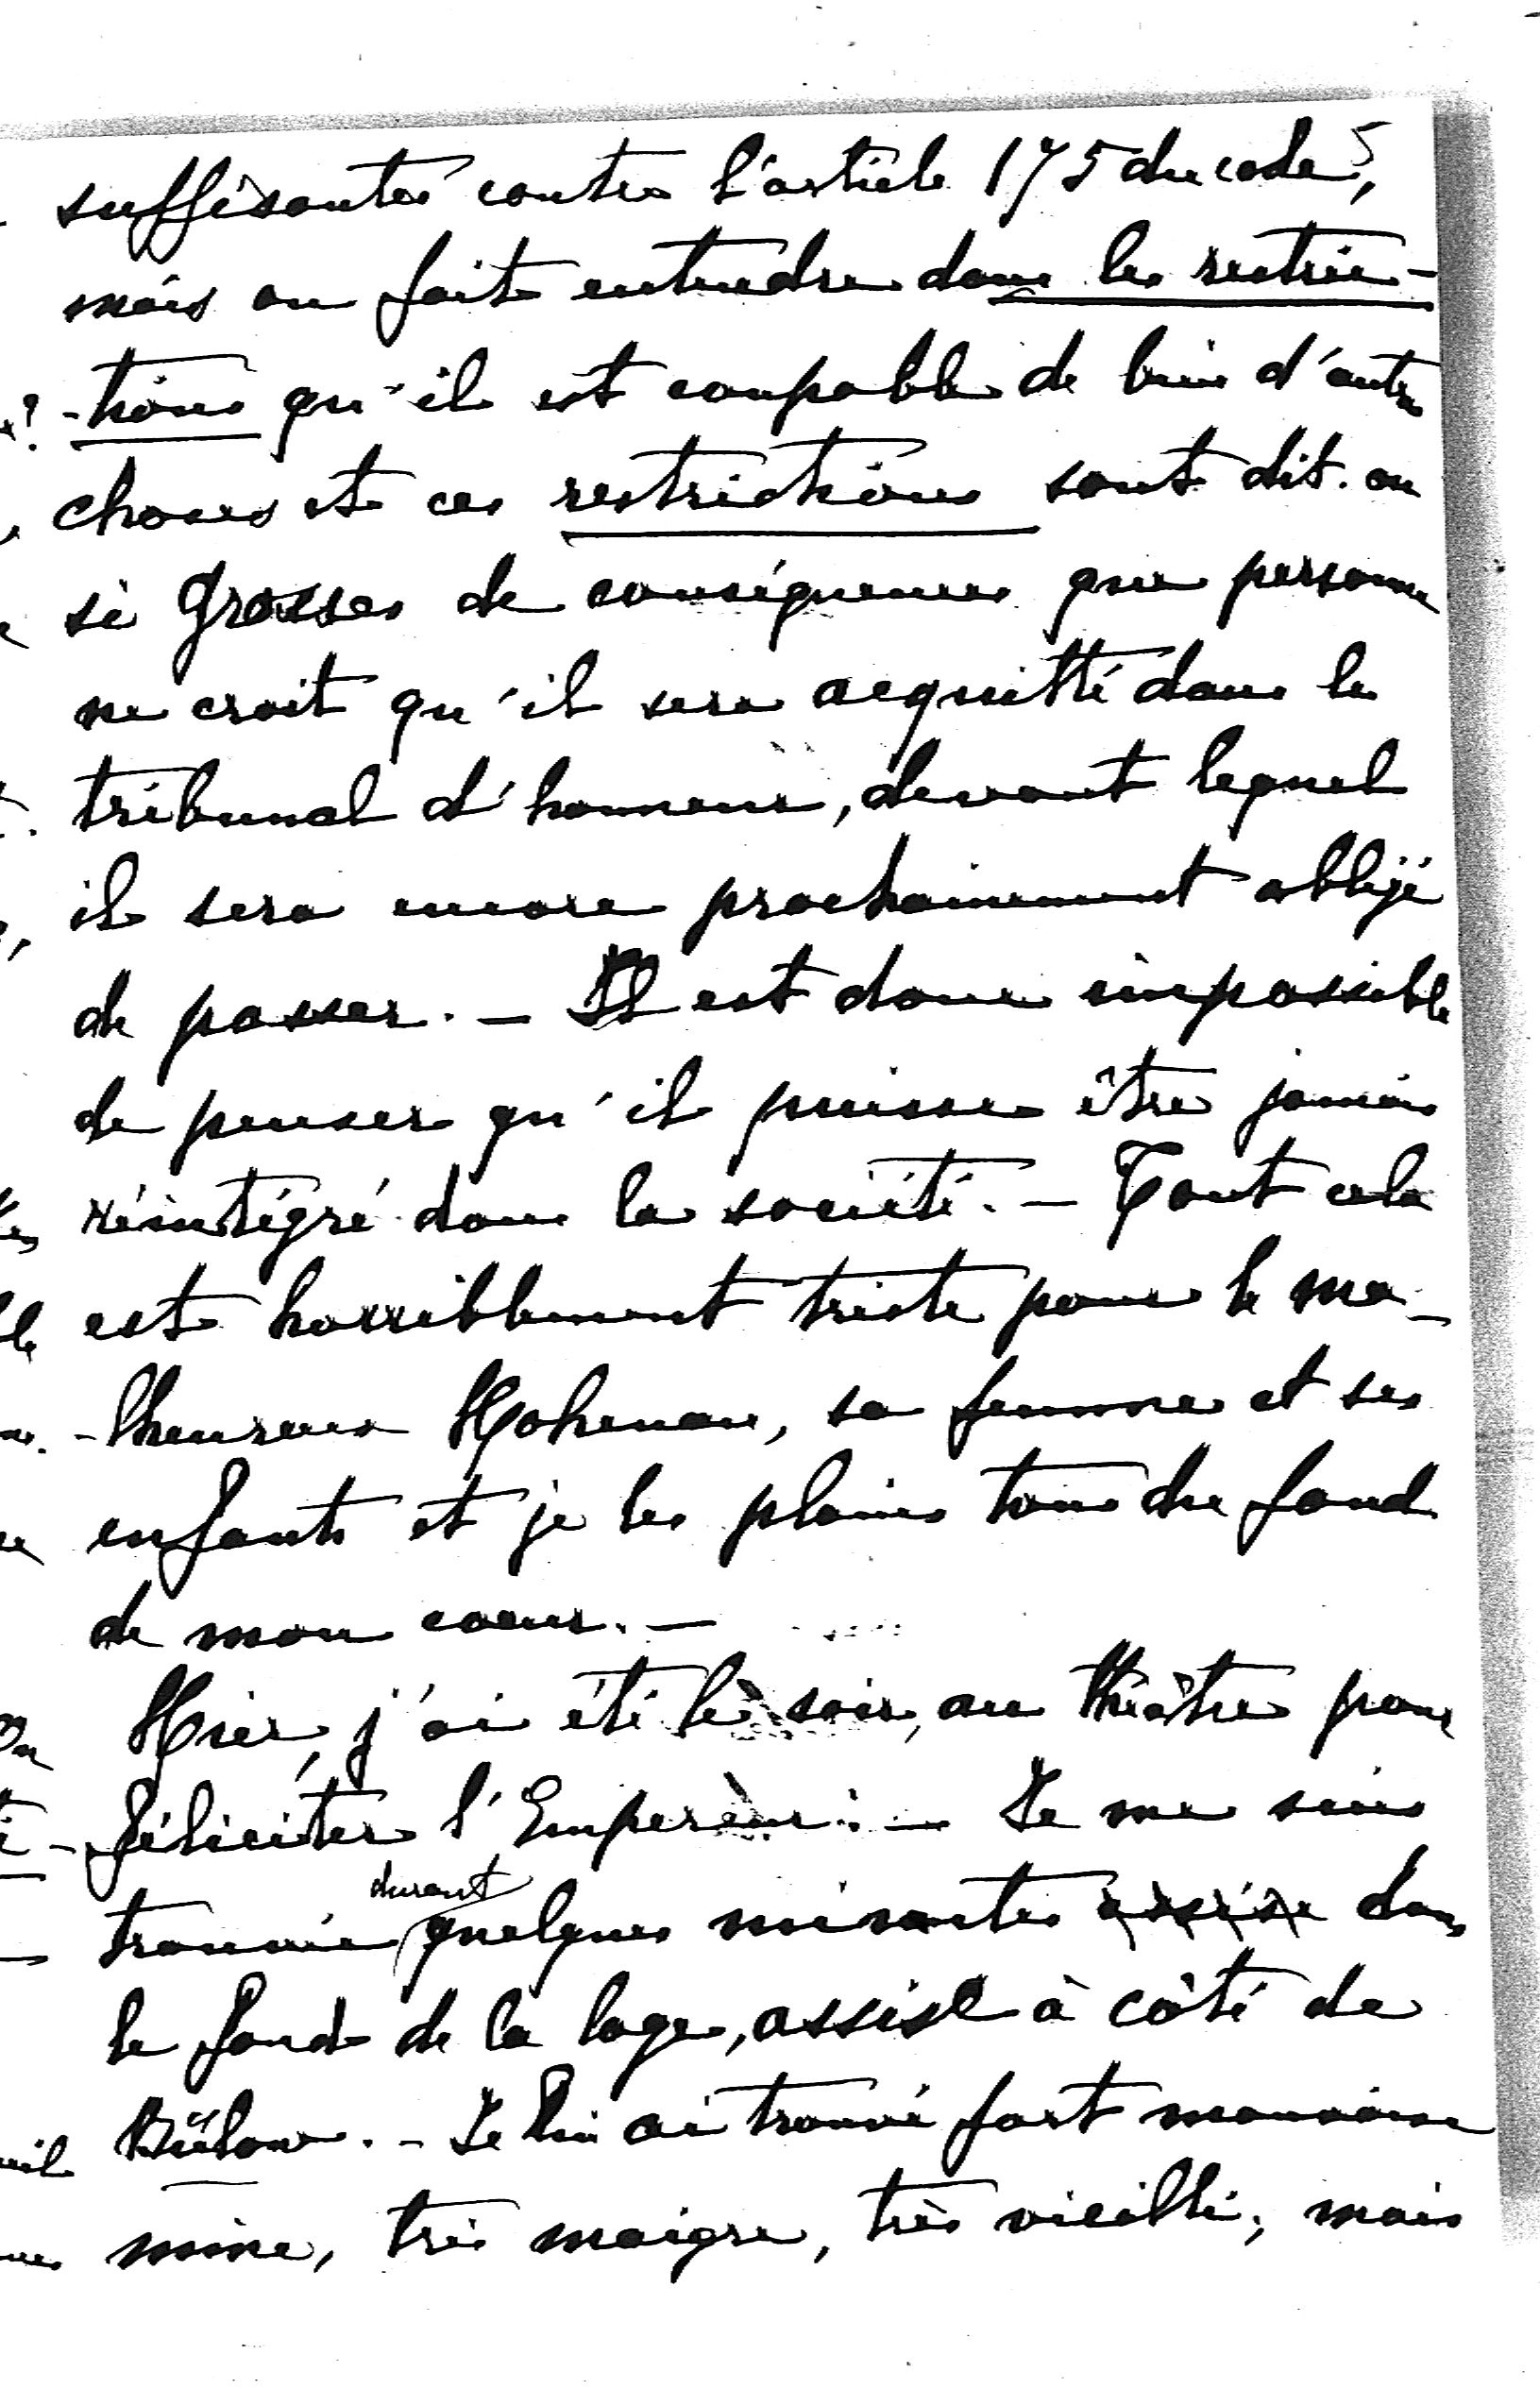 suffisantes contre l'article 175 du code,
mais on fait entendre dans les restric-
-tions qu'il est coupable de bien d'autres
choses et ces restrictions sont dit-on
si grosses de conséquences que personne
ne croit qu'il sera acquitté dans le
tribunal d'honneur, devant lequel
il sera encore prochainement obligé
de passer. – Il est donc impossible
de penser qu'il puisse être jamais
réintégré dans la société. – Tout cela
est horriblement triste pour le ma-
-lheureux Hohenau, sa femme et ses
enfants et je les plains tous du fond
de mon coeur. –
Hier, j'ai été le soir, au théâtre pour
féliciter l'Empereur. – Je me suis
trouvée durant quelques minutes assise dans
le fond de la loge, assise à côté de
Bülow. – Je lui ai trouvé fort mauvaise
mine, très maigre, très vieilli, mais